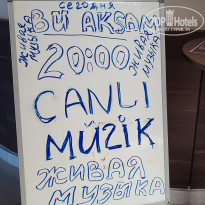 сегодня
BU AKŞAM
живая
музыка
20:00
живая
музыка
CANLI
MÜZİK
ЖИВАЯ
МУЗЫКА
TopHotels